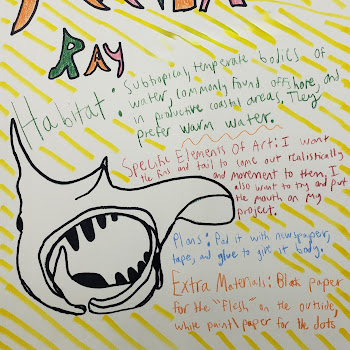 RAY
Habitat: Subtropical, temperate bodies of
water, commonly found offshore, and
in productive coastal areas. They
prefer warm water.
Specific Elements Of Art: I want
the fins and tail to come out realistically
and movement to them. I
also want to try and put
the mouth on my
project.
Plans: Pad it with newspaper,
tape, and glue to give it body.
Extra Materials: Black paper
for the "flesh" on the outside,
white paint/paper for the dots